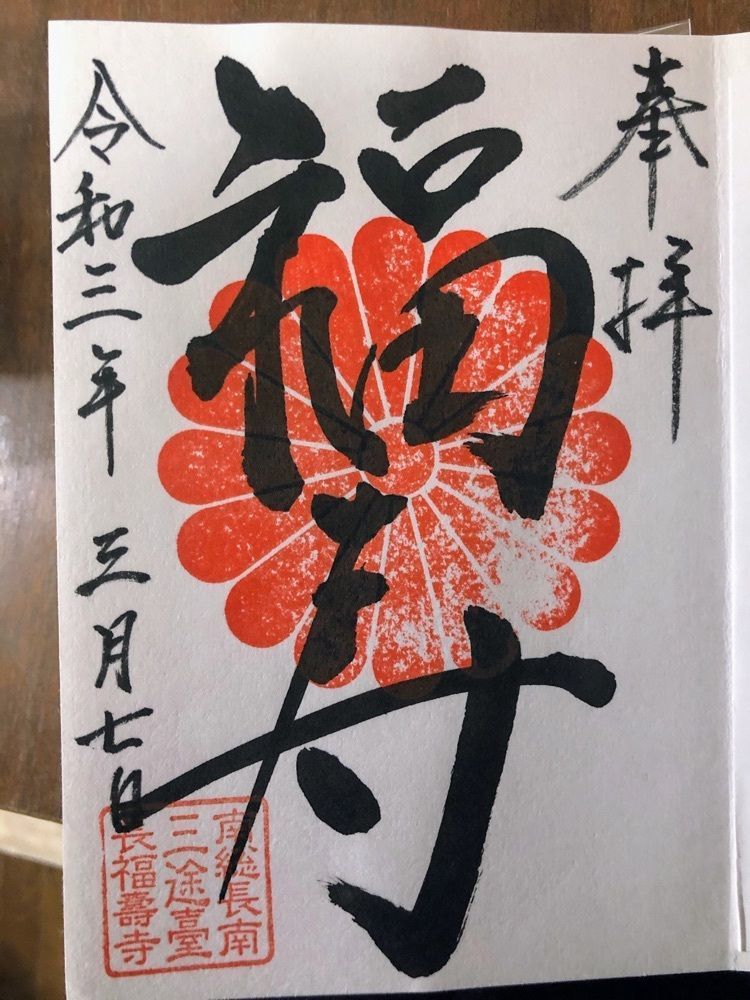 奉拝
福寿
令和三年 三月七日
南総長南
三途臺
長福壽寺